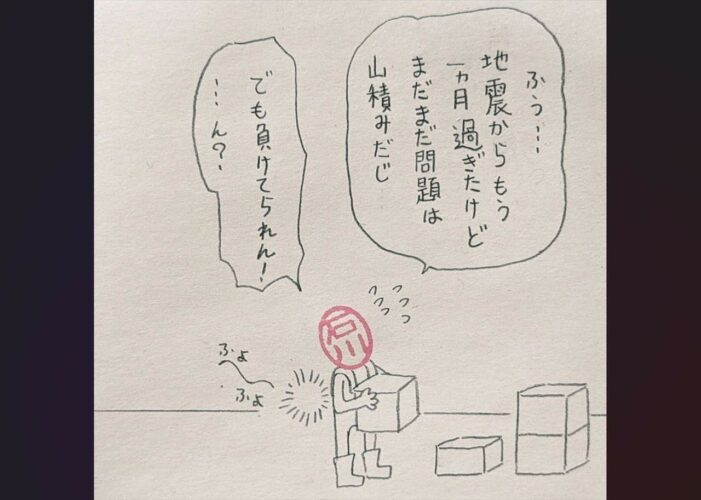 ふぅ…
地震からもう
一ヵ月過ぎたけど
まだまだ問題は
山積みだじ
でも負けてられん！
…ん？
石川
ふよ
ふよ